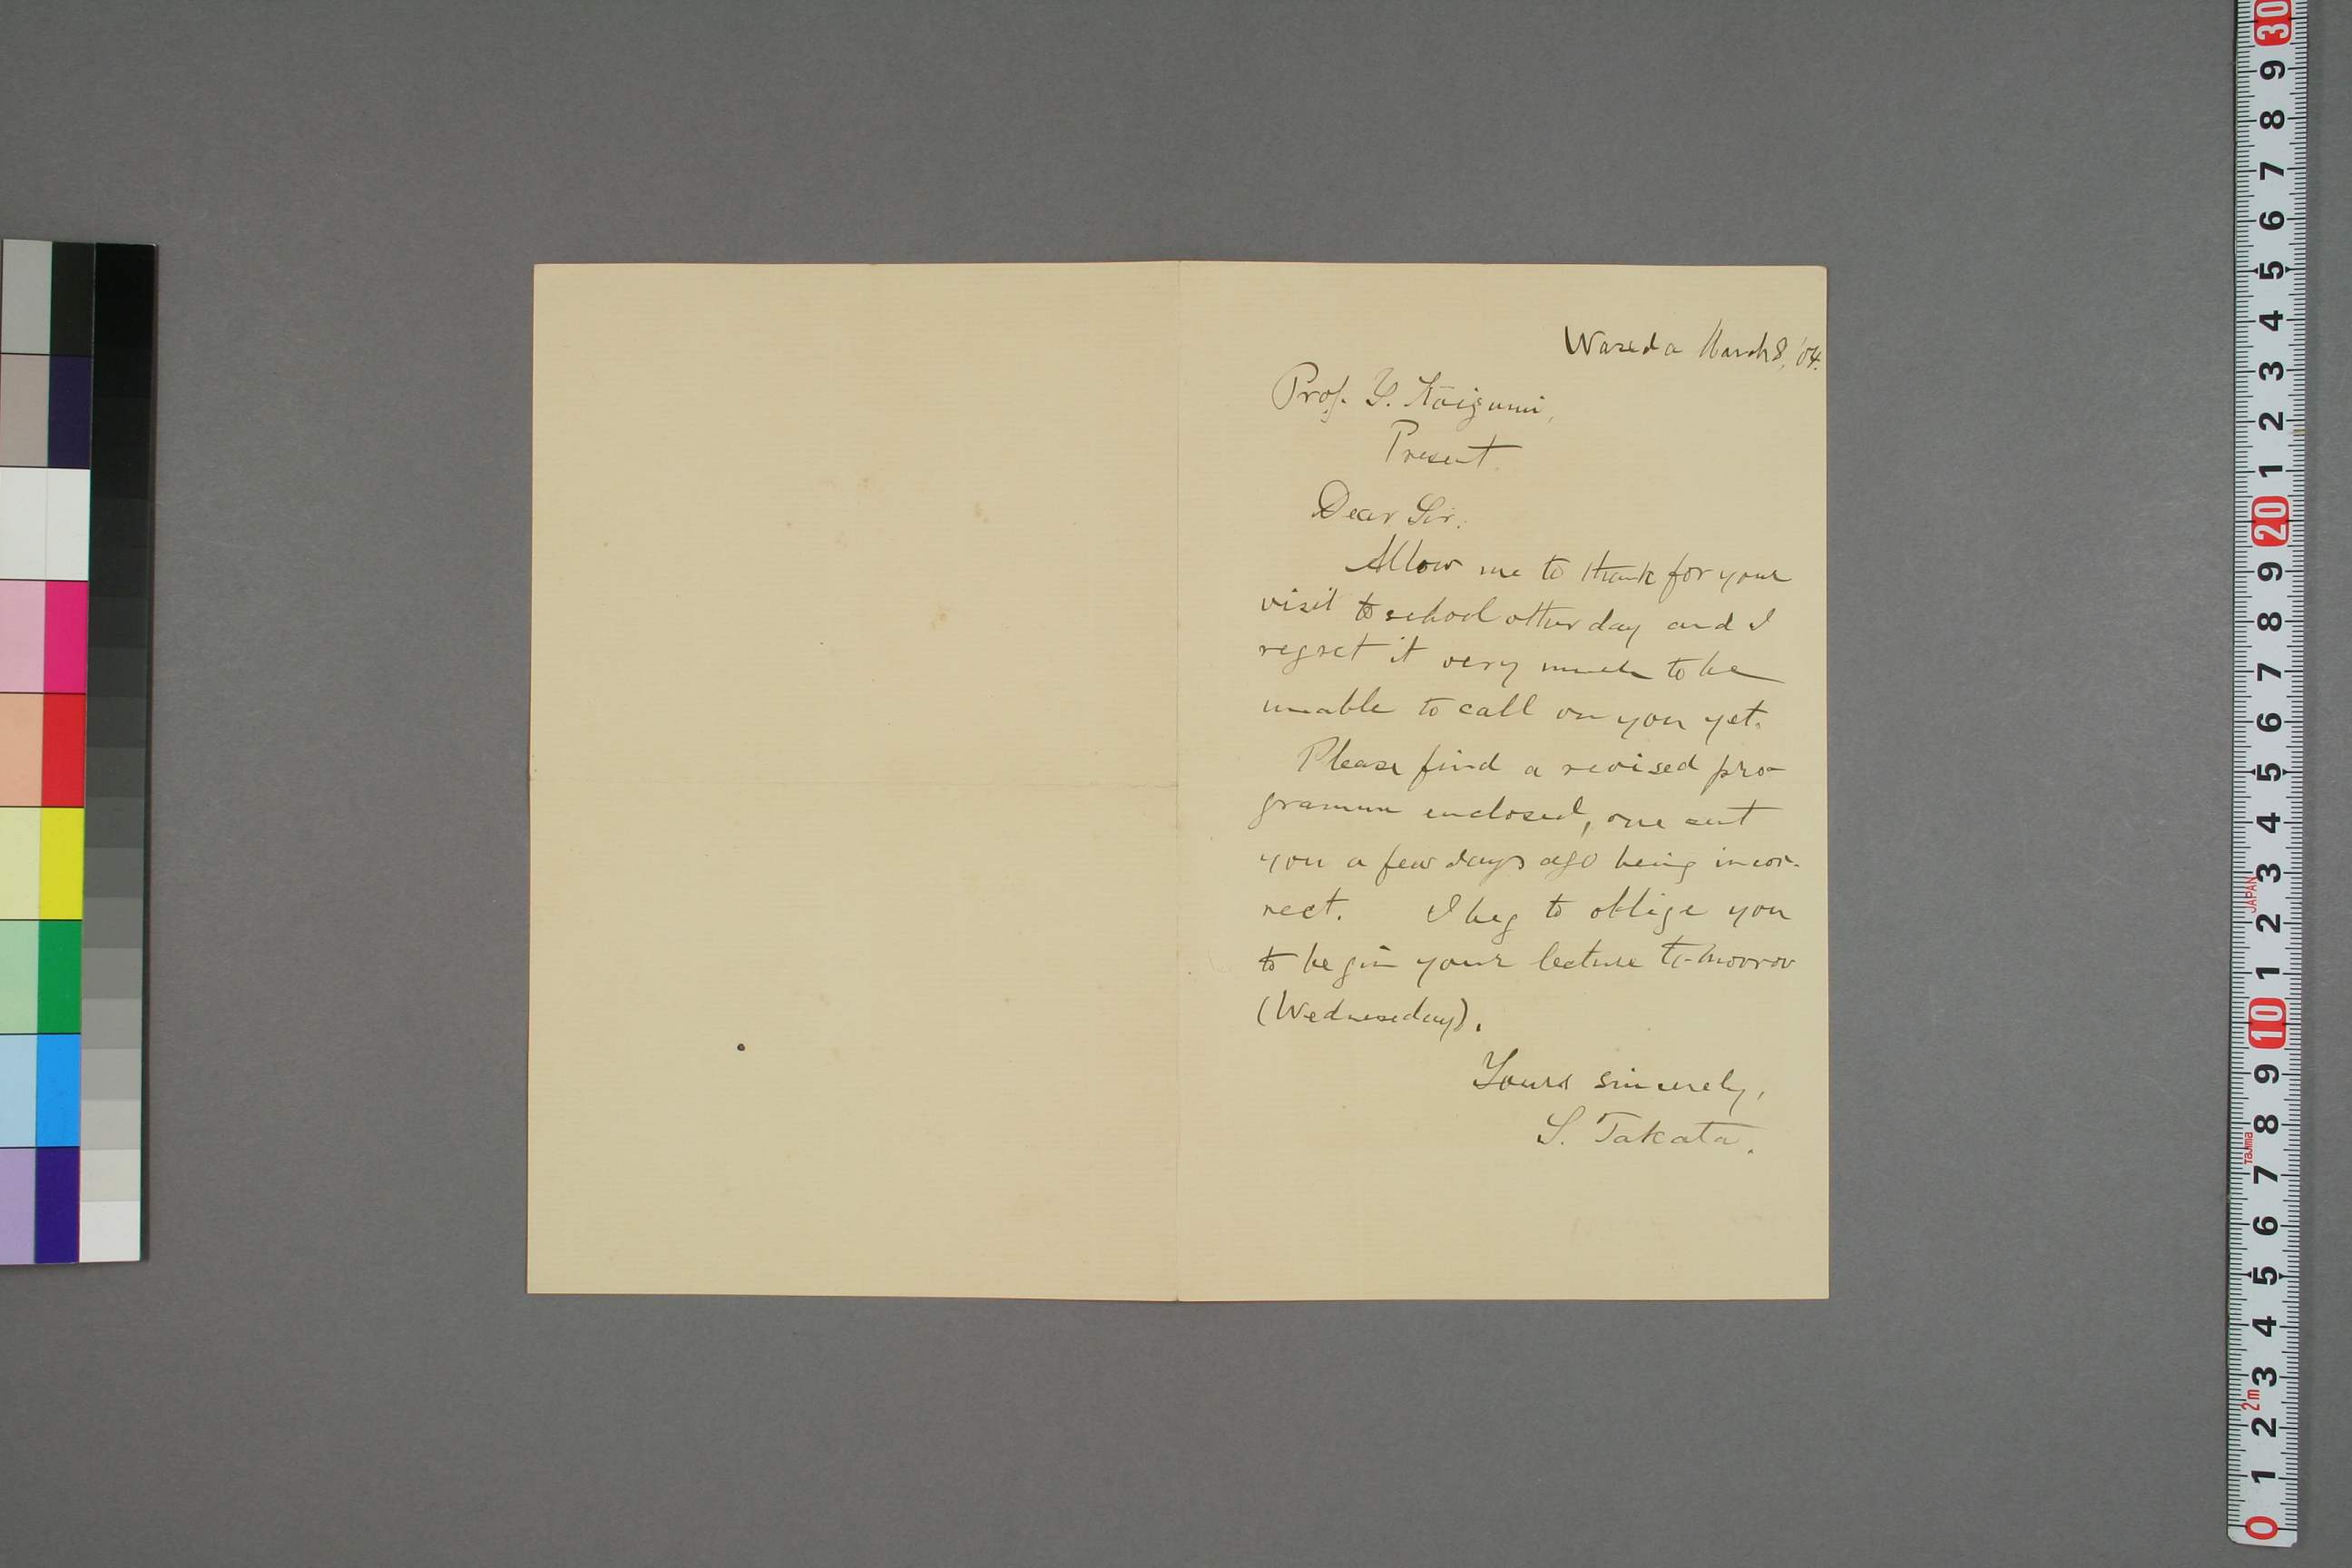 Waseda March 8, '04.
Prof. Y. Koizumi,
Present.
Dear Sir:
Allow me to thank for your
visit to school other day and I
regret it very much to be
unable to call on you yet.
Please find a revised pro-
gramme enclosed, one sent
you a few days ago being incor-
rect. I beg to oblige you
to begin your lecture to-morrow
(Wednesday).
Yours sincerely,
S. Takata.
30
9
8
7
6
5
4
3
2
1
20
9
8
7
6
5
4
3
JAPAN
2
1
10
9
8
Tajima
7
6
5
4
3
2m
2
1
0